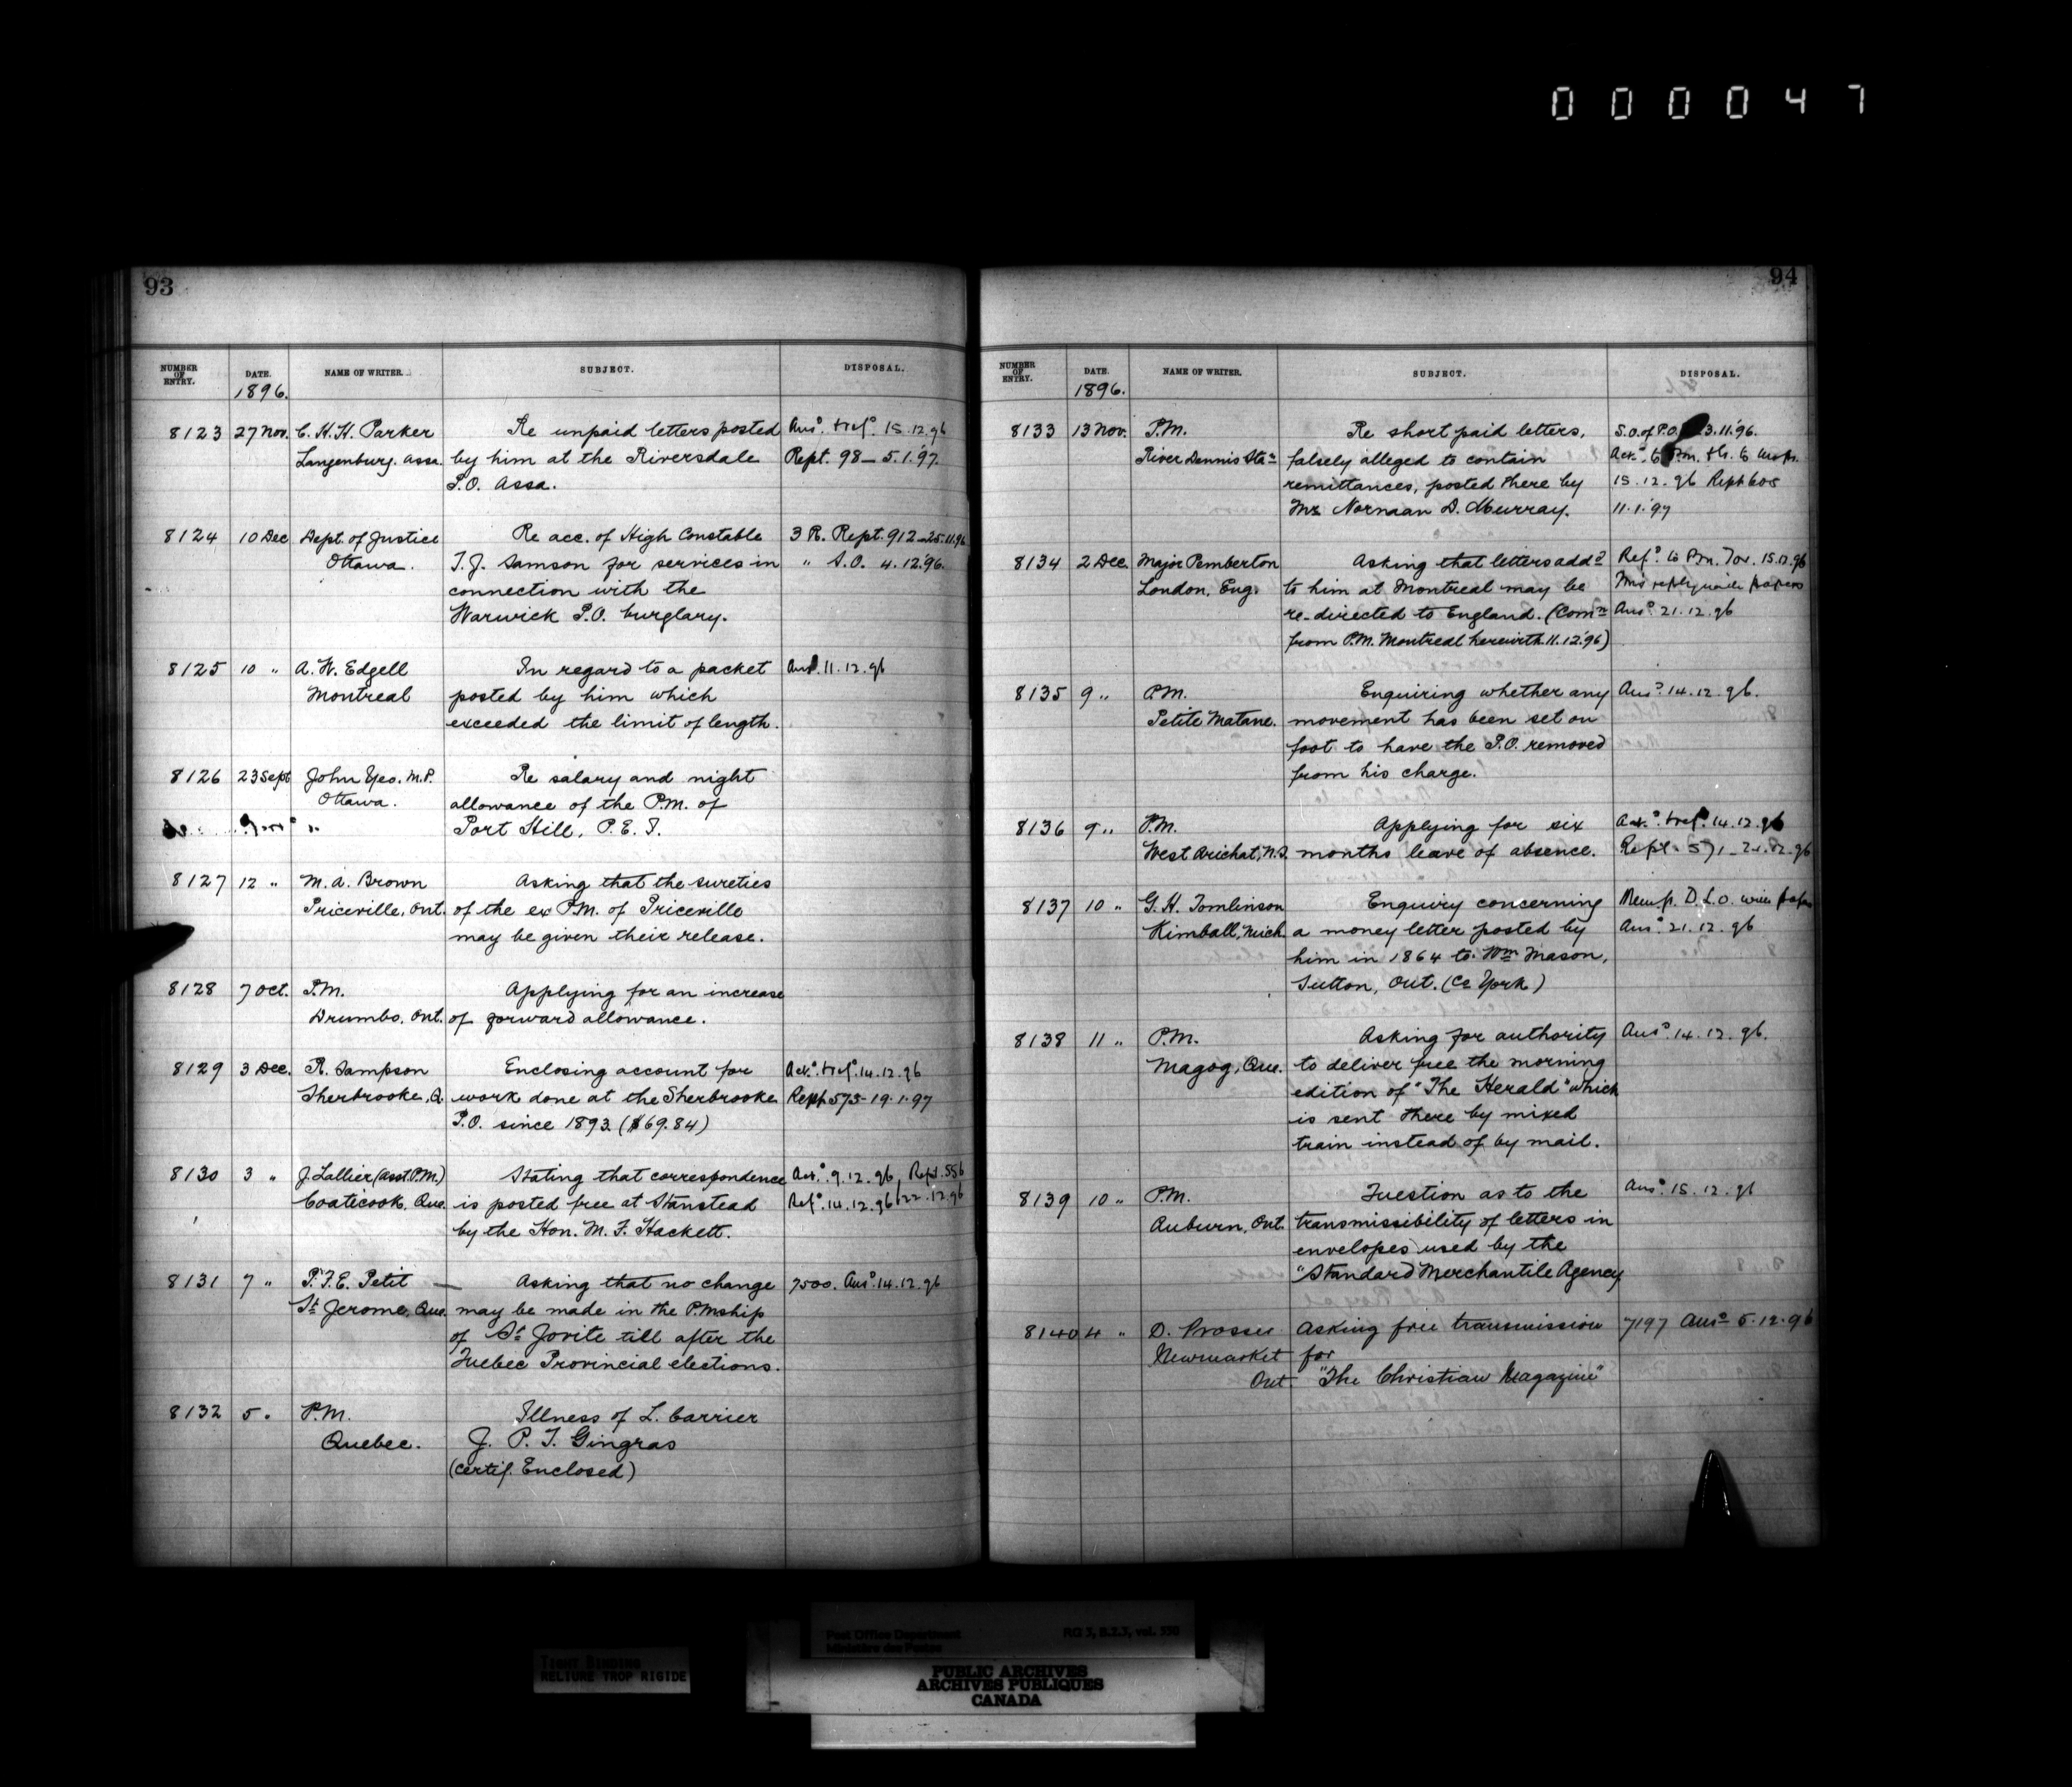 000047
93
NUMBER OF ENTRY. DATE. NAME OF WRITER. SUBJECT. DISPOSAL.
1896.
8123 27 Nov. C. H. H. Parker Re unpaid letters posted Ansd. & refd. 15.12.96
Langenburg. Assa. by him at the Riversdale Rept. 98 – 5.1.'97.
P.O. Assa.
8124 10 Dec Dept. of Justice Re acc. of High Constable 3 R. Rept. 912 – 25.11.96
Ottawa. T. J. Samson for services in " S.O. 4.12.'96.
connection with the
Warwick P.O. burglary.
8125 10 " A. W. Edgell In regard to a packet Ansd. 11.12.96
Montreal posted by him which
exceeded the limit of length.
8126 23 Sept John Yeo. M.P. Re salary and night
Ottawa. allowance of the P.M. of
" Port Hill, P.E.I.
8127 12 " M. A. Brown Asking that the sureties
Priceville, Ont. of the ex P.M. of Priceville
may be given their release.
8128 7 Oct. P.M. Applying for an increase
Drumbo, Ont. of forward allowance.
8129 3 Dec. R. Sampson Enclosing account for Ackd. & refd. 14.12.96
Sherbrooke, Q. work done at the Sherbrooke Rept 575 – 19.1.97
P.O. since 1893. ($69.84)
8130 3 " J. Lallier (Asst. P.M.) Stating that correspondence Ackd. 9.12.96, Rept. 556
Coaticook, Que. is posted free at Stanstead Refd. 14.12.96 22.12.96
by the Hon. M. F. Hackett.
8131 7 " P. F. E. Petit — Asking that no change 7500. Ansd. 14.12.96
St. Jerome, Que. may be made in the P.Mship
of St. Jovite till after the
Quebec Provincial elections.
8132 5 " P.M. Illness of L. Carrier
Quebec. J. P. T. Gingras
(Certif. Enclosed)
94
NUMBER OF ENTRY. DATE. NAME OF WRITER. SUBJECT. DISPOSAL.
1896.
8133 13 Nov. P.M. Re short paid letters, S.O. of P.O. 3.11.'96.
River Dennis Stan. falsely alleged to contain Ackd. to P.M.
remittances, posted there by 15.12.96 Rept 608
Mr. Norman D. Murray. 11.1.'97
8134 2 Dec. Major Pemberton Asking that letters addd. Refd. to P.M. Tor. 15.12.96
London, Eng. to him at Montreal may be His reply with papers
re-directed to England. (Comn. Ansd. 21.12.96
from P.M. Montreal herewith 11.12.'96)
8135 9 " P.M. Enquiring whether any Ansd. 14.12.96.
Petite Matane. movement has been set on
foot to have the P.O. removed
from his charge.
8136 9 " P.M. Applying for six Ackd. & refd. 14.12.96
West Arichat, N.S. months leave of absence. Rept. 571 – 21.12.96
8137 10 " G. H. Tomlinson Enquiry concerning Memp. D.L.O. with papers
Kimball, Mich. a money letter posted by Ansd. 21.12.96
him in 1864 to Wm. Mason,
Sutton, Ont. (Co York)
8138 11 " P.M. Asking for authority Ansd. 14.12.96.
Magog, Que. to deliver free the morning
edition of "The Herald" which
is sent there by mixed
train instead of by mail.
8139 10 " P.M. Question as to the Ansd. 15.12.96
Auburn, Ont. transmissibility of letters in
envelopes used by the
"Standard Merchantile Agency
8140 4 " D. Prosser Asking free transmission 7197 Ansd. 5.12.96
Newmarket for
Ont. "The Christian Magazine"
TIGHT BINDING
RELIURE TROP RIGIDE
Post Office Department RG 3, B.2.3, vol. 550
Ministère des Postes
PUBLIC ARCHIVES
ARCHIVES PUBLIQUES
CANADA